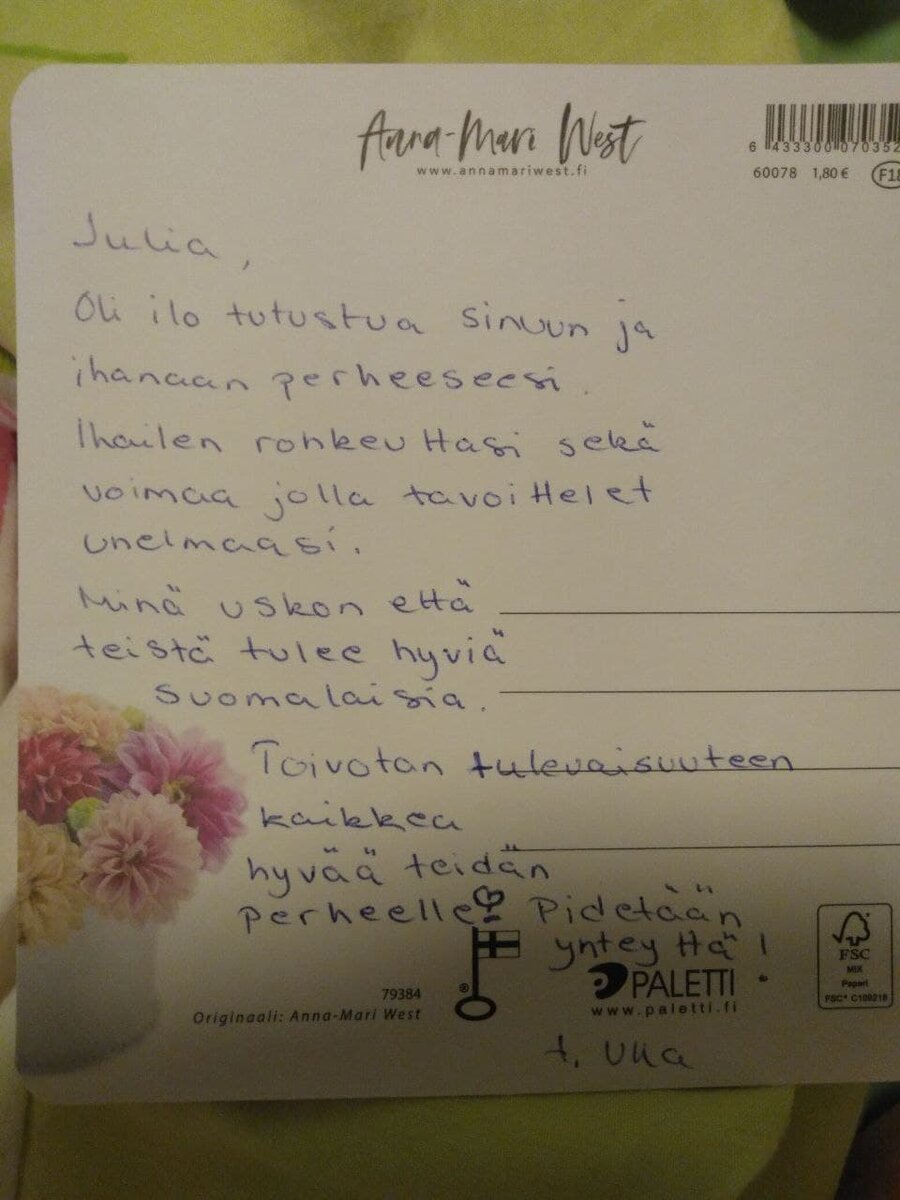 Anna-Mari West
www.annamariwest.fi
6 433300 070352
60078 1,80 € F18
Julia,
Oli ilo tutustua sinuun ja
ihanaan perheeseesi.
Ihailen rohkeuttasi sekä
voimaa jolla tavoittelet
unelmaasi.
Minä uskon että
teistä tulee hyviä
suomalaisia.
Toivotan tulevaisuuteen
kaikkea
hyvää teidän
perheelle! Pidetään
yhteyttä!
® PALETTI
www.paletti.fi
FSC
MIX
Paperi
FSC® C109218
79384
Originaali: Anna-Mari West
t. Ulla